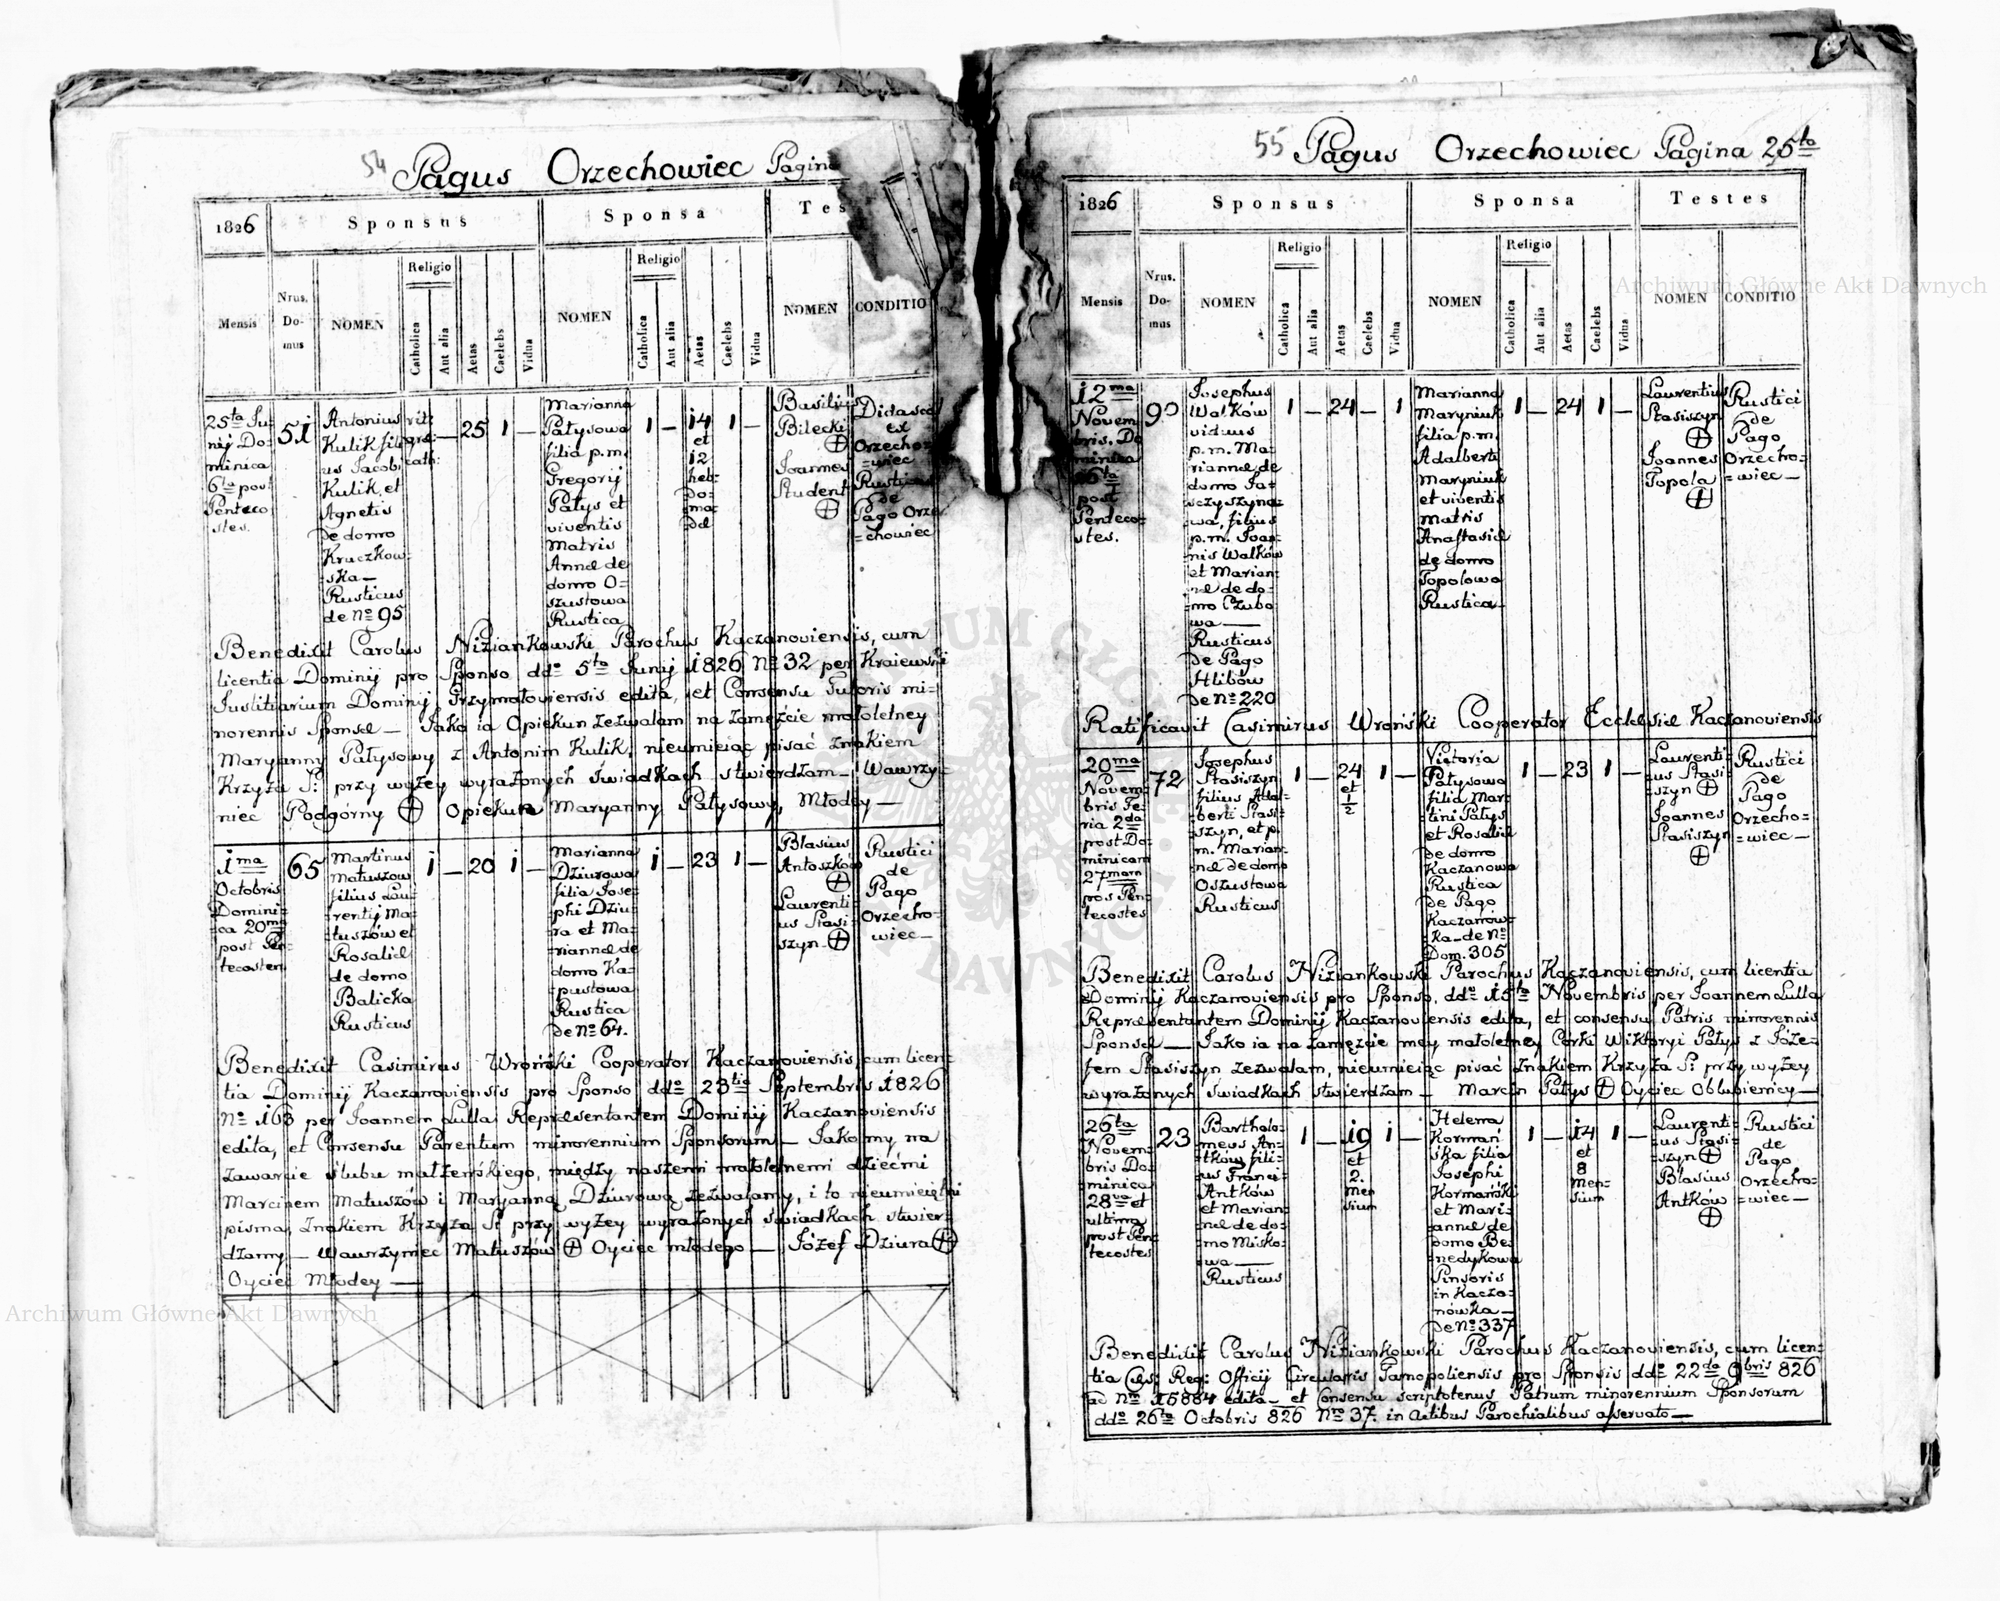 54 Pagus Orzechowiec Pagina
1826 Sponsus Sponsa Tes
Religio Religio
Mensis Nrus. Do- mus NOMEN Catholica Aut alia Aetas Caelebs Vidua NOMEN Catholica Aut alia Aetas Caelebs Vidua NOMEN CONDITIO
25ta Ju=
nij Do=
minica
6ta post
Penteco
stes.
51
Antonius
Kulik fili
us Jacobi
Kulik et
Agnetis
de domo
Kruczkow=
=ska—
Rusticus
de No 95
rit:
græ:
cath:
— 25 1 —
Marianna
Patysowa
filia p.m.
Gregorij
Patys et
viventis
Matris
Annæ de
domo O=
szustowa
Rustica
1 — 14
et
12
heb=
do=
ma=
dæ
1 —
Basilius
Bilecki
Joannes
Student
Didasca
Orzecho=
=wiec
Rusticus
de
Pago Orze
=chowiec
Benedixit Carolus Niziankowski Parochus Kaczanoviensis, cum
licentia Dominij pro Sponso ddo 5ta Junij 1826 No 32 per Kraiewski
Justitiarium Dominij Grzymaloviensis edita, et Consensu Tutoris mi=
norennis Sponsæ — Jako ia Opiekun zezwalam na zamęźcie małoletney
Maryanny Patysowy z Antonim Kulik, nieumieiąc pisać znakiem
Krzyża S: przy wyżey wyrażonych świadkach stwierdzam — Wawrzy=
niec Podgórny Opiekun Maryanny Patysowy, Młodey —
1ma
Octobris
Domini=
ca 20ma
post Pen=
tecosten
65
Martinus
Matuszow
filius Lau=
rentij Ma=
tuszów et
Rosaliæ
de domo
Balicka
Rusticus
1 — 20 1 —
Marianna
Dziurowa
filia Jose=
phi Dziu=
ra et Ma=
riannæ de
domo Ka=
pustowa
Rustica
de No 64.
1 — 23 1 —
Blasius
Antoszków
Laurenti=
us Stasi=
szyn
Rustici
de
Pago
Orzecho=
wiec —
Benedixit Casimirus Wroński Cooperator Kaczanoviensis, cum licen=
tia Dominij Kaczanoviensis pro Sponso ddo 23tia Septembris 1826
No 163 per Joannem Lulla Repræsentantem Dominij Kaczanoviensis
edita, et Consensu Parentum minorennium Sponsorum — Jako my na
zawarcie ślubu małżeńskiego, między naszemi małoletnemi dziećmi
Marcinem Matuszów i Maryanną Dziurową zezwalamy, i to nieumieiętni
pisma, znakiem Krzyża S: przy wyżey wyrażonych świadkach stwier=
dzamy — Wawrzyniec Matuszów Oyciec młodego — Józef Dziura
Oyciec Młodey —
55 Pagus Orzechowiec Pagina 25ta
1826 Sponsus Sponsa Testes
Religio Religio
Mensis Nrus. Do- mus NOMEN Catholica Aut alia Aetas Caelebs Vidua NOMEN Catholica Aut alia Aetas Caelebs Vidua NOMEN CONDITIO
12ma
Novem
bris. Do
minica
post
Penteco=
stes.
90
Josephus
Walków
viduus
p.m. Ma=
riannæ de
domo Ja=
szczyszyno=
wa, filius
p.m. Joan=
nis Walków
et Marian=
næ de do=
mo Czubo
wa —
Rusticus
de Pago
Hlibów
de No 220
1 — 24 — 1
Marianna
Maryniuk
filia p.m.
Adalberti
Maryniuk
et viventis
Matris
Anastasiæ
de domo
Topolowa
Rustica
1 — 24 1 —
Laurentius
Stasiszyn
Joannes
Topola
Rustici
de
Pago
Orzecho=
=wiec —
Ratificavit Casimirus Wroński Cooperator Ecclesiæ Kaczanoviensis
20ma
Novem=
bris Fe=
ria 2da
post Do=
minicam
27mam
post Pen=
tecostes
72
Josephus
Stasiszyn
filius Adal=
berti Stasi=
szyn, et p.
m. Marian=
næ de domo
Oszustowa
Rusticus
1 — 24
et
1/2
1 —
Victoria
Patysowa
filia Mar=
tini Patys
et Rosaliæ
de domo
Kaczanowa
Rustica
de Pago
Kaczanów=
ka de No
Dom. 305
1 — 23 1 —
Laurenti=
us Stasi=
szyn
Joannes
Stasiszyn
Rustici
de
Pago
Orzecho=
=wiec —
Benedixit Carolus Niziankowski Parochus Kaczanoviensis, cum licentia
Dominij Kaczanoviensis pro Sponso, ddo 15ta Novembris per Joannem Lulla
Repræsentantem Dominij Kaczanoviensis edita, et consensu Patris minorennis
Sponsæ — Jako ia na zamęzcie mey małoletney Corki Wiktoryi Patys z Józe=
fem Stasiszyn zezwalam, nieumieiąc pisać znakiem Krzyża S: przy wyżey
wyrażonych świadkach stwierdzam — Marcin Patys Oyciec Oblubienicy —
26ta
Novem=
bris Do=
minica
28va et
ultima
post Pen=
tecostes
23
Bartholo=
meus An=
tków fili=
us Franci=
Antków
et Marian=
næ de do=
mo Misko=
wa —
Rusticus
1 — 19
et
2.
Men
sium
1 —
Helena
Kormań
ska filia
Josephi
Kormański
et Mari=
annæ de
domo Be=
nedykowa
Pinsoris
in Kacza=
nówka —
de No 337
1 — 14
et
8
Men=
sium
1 —
Laurenti=
us Stasi=
szyn
Blasius
Antków
Rustici
de
Pago
Orzecho=
=wiec —
Benedixit Carolus Niziankowski Parochus Kaczanoviensis, cum licen=
tia Cæs: Reg: Officij Circularis Tarnopoliensis pro Sponsis ddo 22da 9bris 826
ad Nm 15884 edita — et Consensu scriptotenus Patrum minorennium Sponsorum
ddo 26ta Octobris 826 Nro 37 in Actibus Parochialibus asservato —
Archiwum Główne Akt Dawnych
Archiwum Główne Akt Dawnych